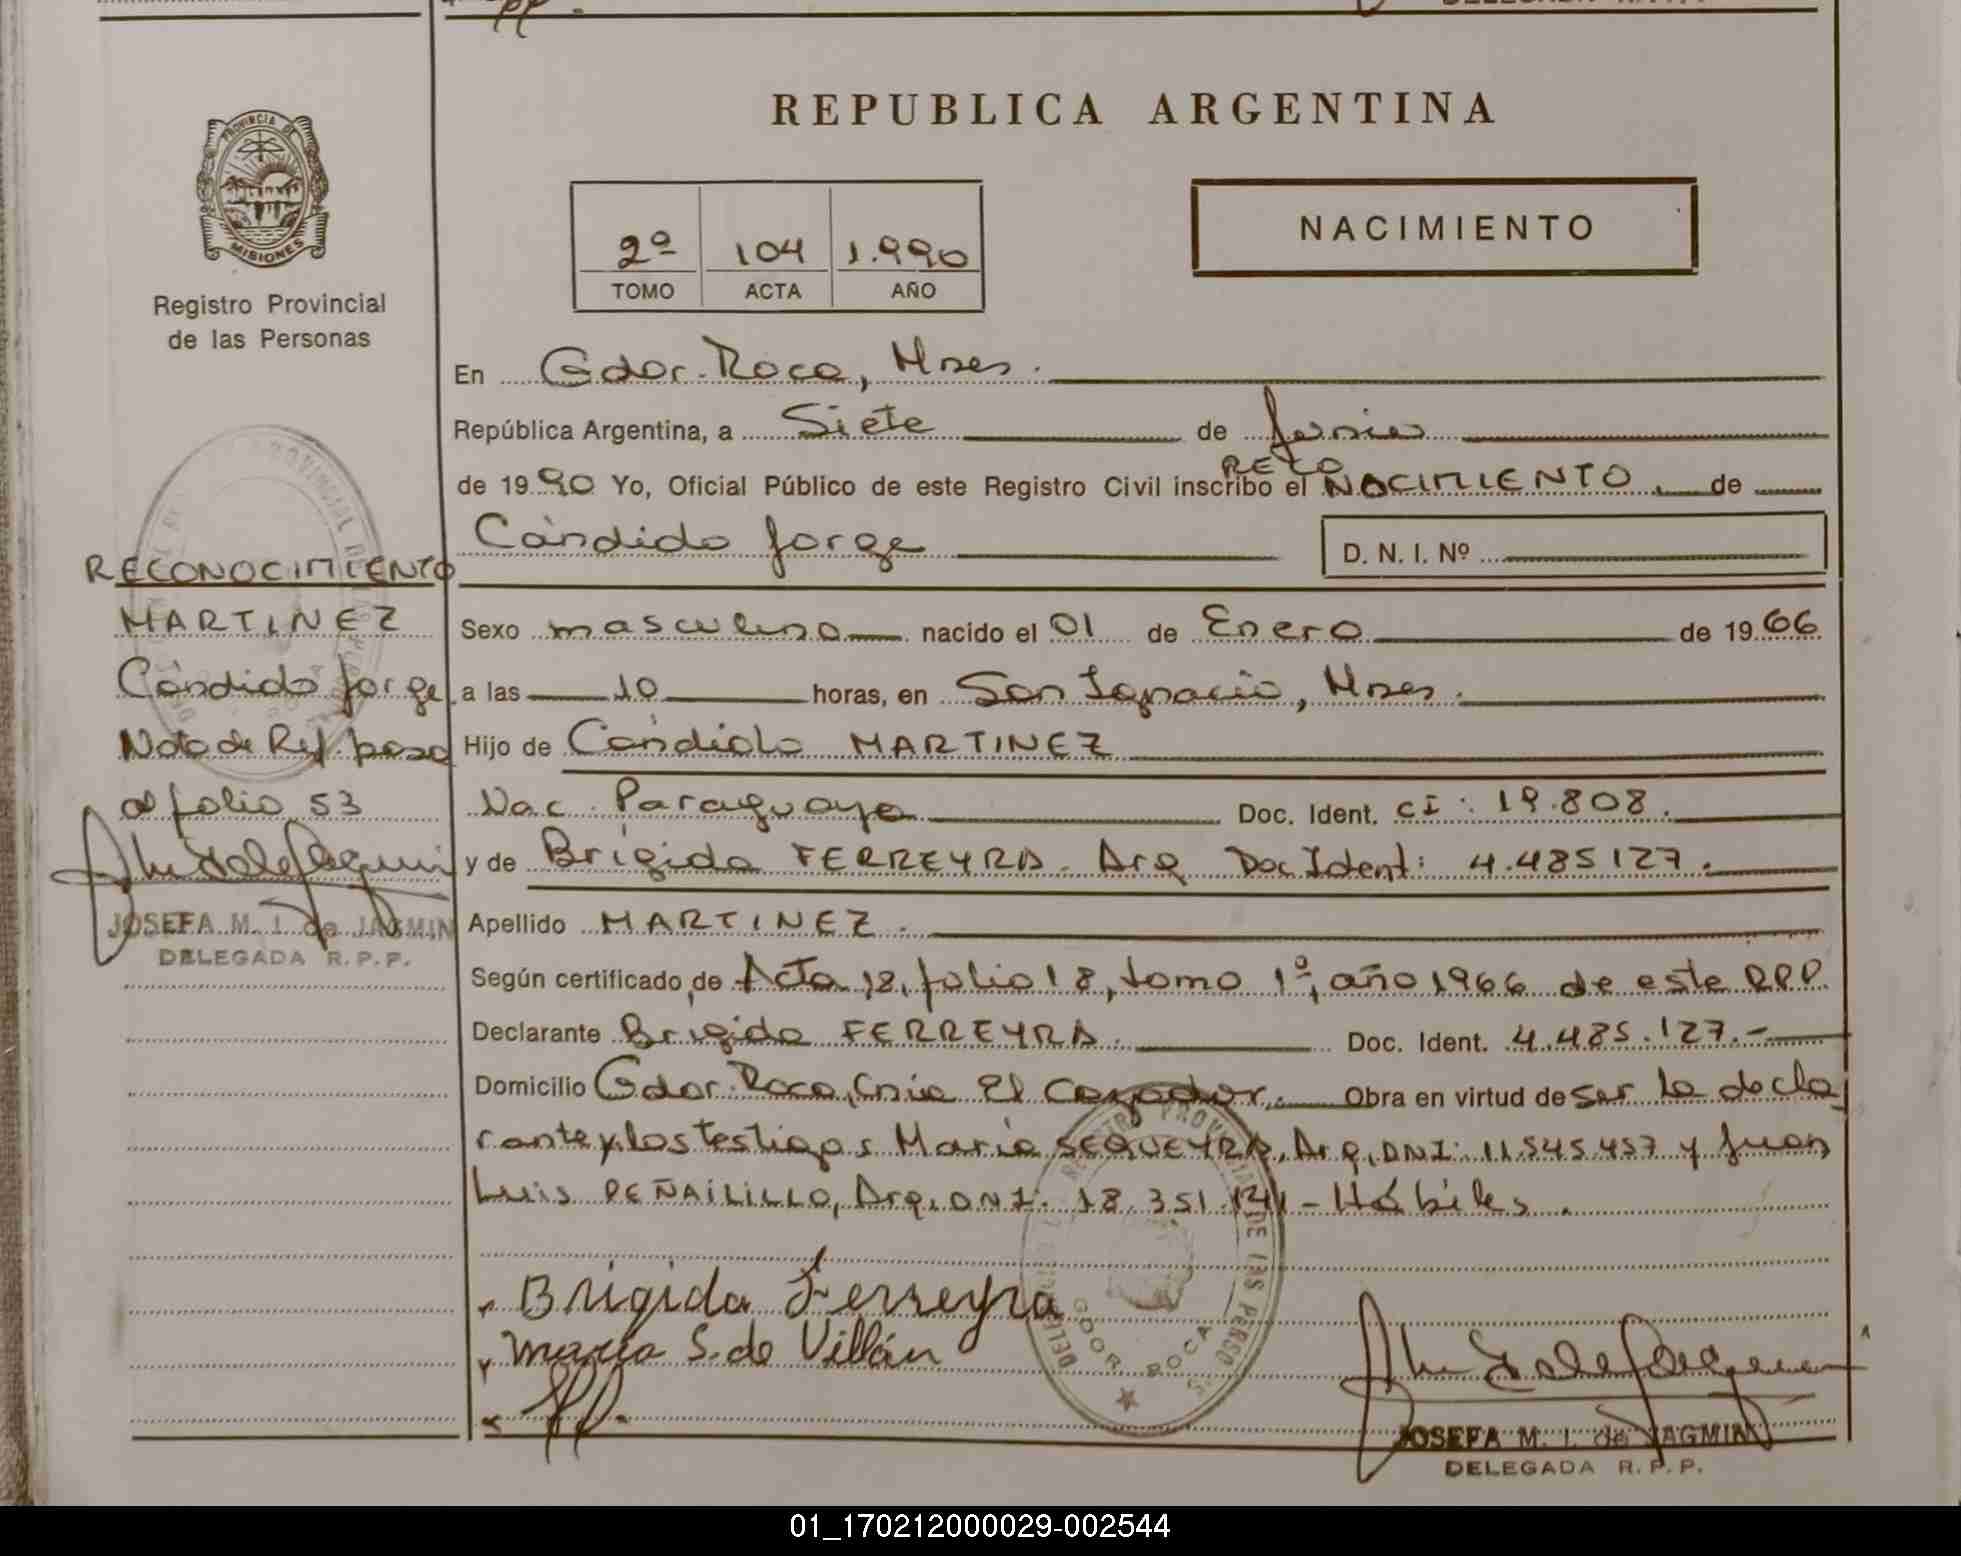 REPUBLICA ARGENTINA
PROVINCIA DE
MISIONES
Registro Provincial
de las Personas
NACIMIENTO
2º 104 1.990
TOMO ACTA AÑO
En Gdor. Roca, Mnes.
República Argentina, a Siete de Junio
de 1990 Yo, Oficial Público de este Registro Civil inscribo el RECONOCIMIENTO de
Cándido Jorge D. N. I. Nº
RECONOCIMIENTO
MARTINEZ
Cándido Jorge
Nota de Ref. pasa
al folio 53
JOSEFA M. I. de JAGMIN
DELEGADA R.P.P.
Sexo masculino nacido el 01 de Enero de 1966
a las 10 horas, en San Ignacio, Mnes.
Hijo de Cándido MARTINEZ
Nac. Paraguaya Doc. Ident. CI: 19.808.
y de Brígida FERREYRA. Arg Doc Ident: 4.485127.
Apellido MARTINEZ.
Según certificado de Acta 18, folio 18, tomo 1º, año 1966 de este RPP.
Declarante Brígida FERREYRA. Doc. Ident. 4.485.127.-
Domicilio Gdor. Roca, Cnia El Cazador. Obra en virtud de ser la decla
rante y los testigos María SEQUEYRA, Arg, DNI: 11.545.457 y Juan
Luis PEÑAILILLO, Arg, DNI: 18.351.141 - Hábiles.
Brigida Ferreyra
maria S. de Villán
GDOR ROCA
JOSEFA M. I. de JAGMIN
DELEGADA R.P.P.
01_170212000029-002544